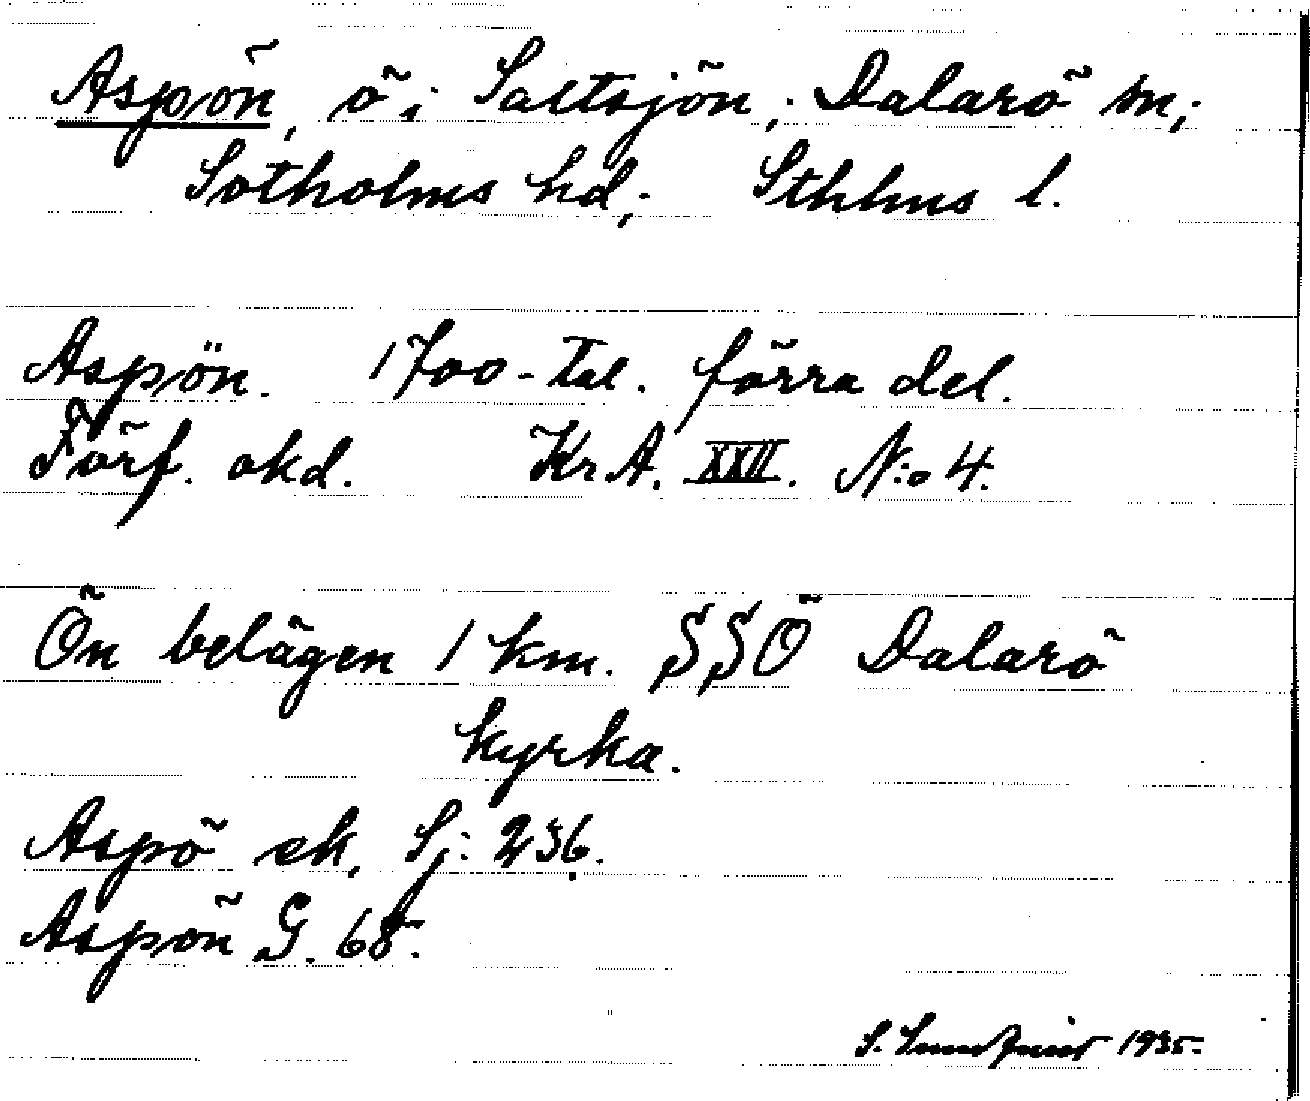 Aspön, ö i Saltsjön; Dalarö sn;
Sotholms hd; Sthlms l.
Aspön. 1700-tal. förra del.
Förf. okd. Kr A. XXII. N:o 4.
Ön belägen 1 km. SSÖ Dalarö
kyrka.
Aspö ek. Sj: 236.
Aspön G. 65.
S. 1935.